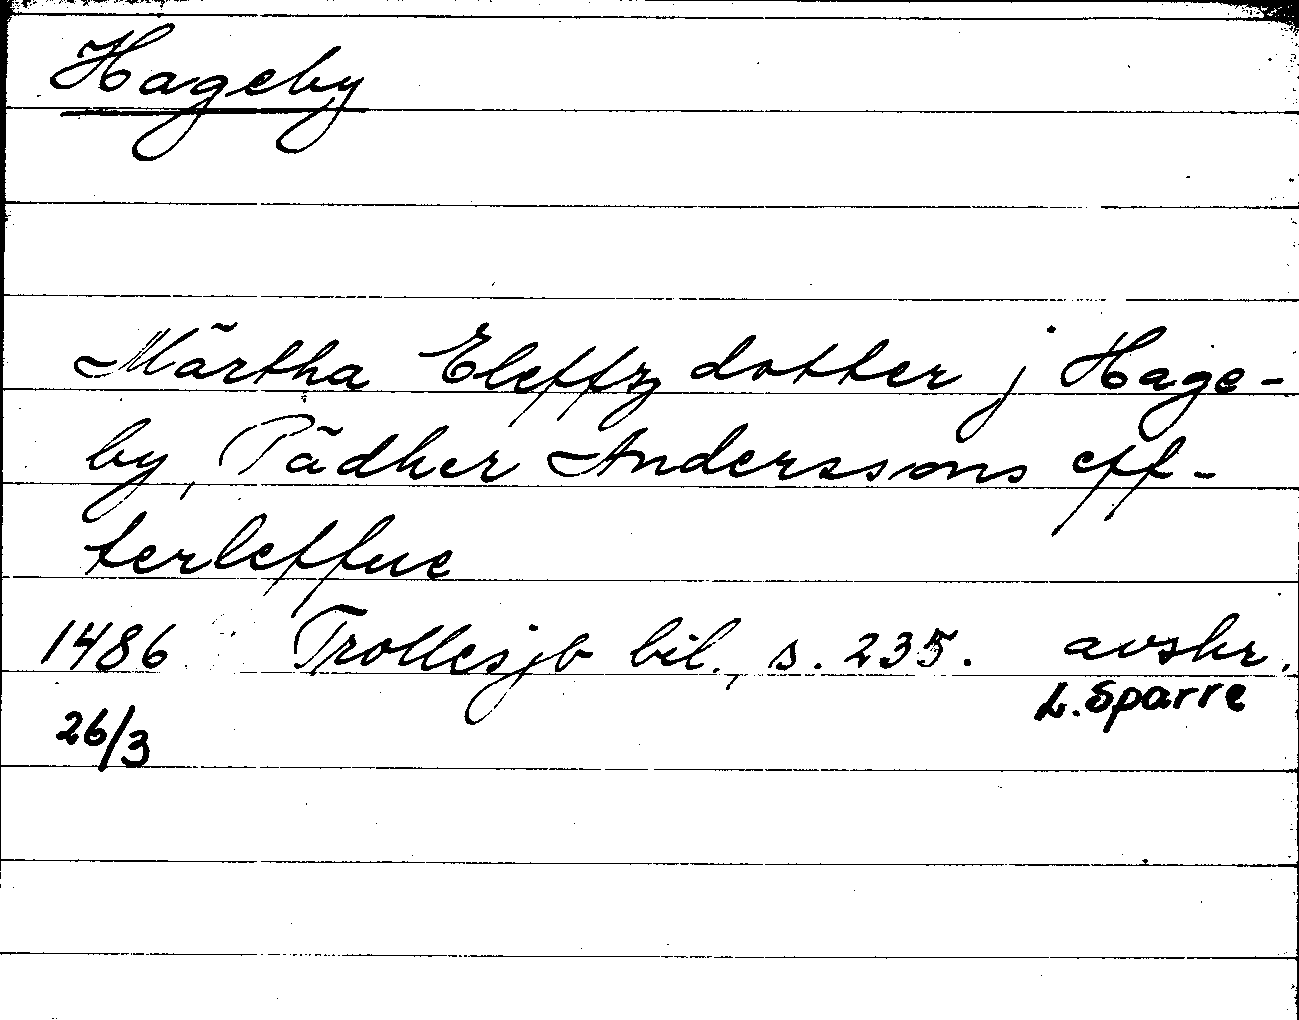 Hageby
Märtha Eleffz dotter j Hage-
by, Pädher Anderssons eff-
terleffue
1486 Trollesjö bil., s. 235. avskr.
L. Sparre
26/3